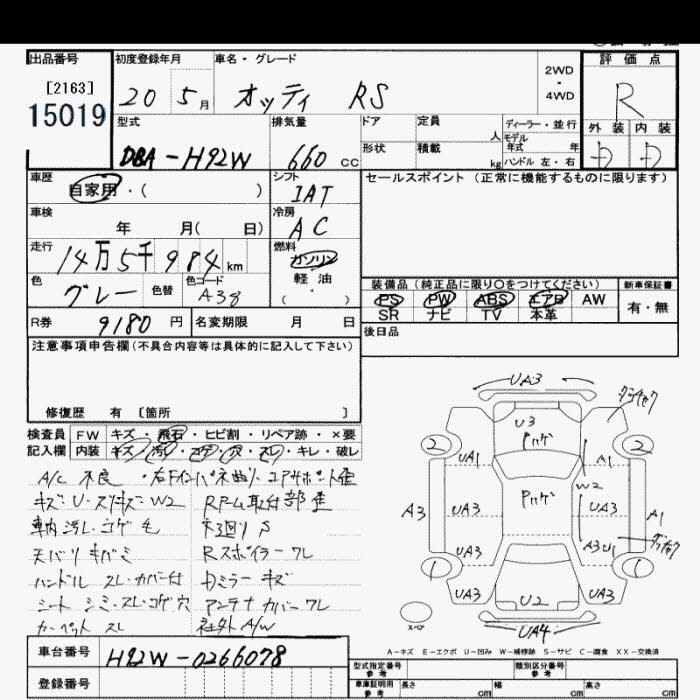 出品番号 初度登録年月 車名・グレード 2WD・4WD 評価点
[2163]
15019
20 5月 オッティ RS R
型式 排気量 ドア 定員 人 ディーラー・並行 外装 内装
モデル年式 年
DBA-H92W 660cc 形状 積載 kg ハンドル 左・右 D D
車歴 シフト セールスポイント（正常に機能するものに限ります）
自家用・( ) IAT
車検 年 月( 日) 冷房 AC
走行 14万5千984km 燃料 ガソリン
軽油
( ・ )
色 グレー 色替 色コード A38
装備品（純正品に限り○をつけてください） 新車保証書
PS PW ABS エアB AW 有・無
SR ナビ TV 本革
R券 9180円 名変期限 月 日
後日品
注意事項申告欄（不具合内容等は具体的に記入して下さい）
修復歴 有 〔箇所 〕
検査員 FW キズ・飛石・ヒビ割・リペア跡・×要
記入欄 内装 キズ・汚レ・コゲ・穴・スレ・キレ・破レ
A/C 不良 ・右Fインパネ曲り・コアサポート歪
キズ U・スリキズ W2 Rドーム取付部歪
車内汚レ・コゲ・毛 下廻りS
天バリ キバミ Rスポイラーワレ
ハンドル スレ・カバー付 Dミラー キズ
シート シミ・スレ・コゲ穴 アンテナカバーワレ
カーペット スレ 社外A/W
UA3
U3
Pハゲ
2 2
UA1 A1
Pハゲ W2
A3 UA3 UA3 A1
UA3 A3U1
1 1
UA3 U2 UA3
スペア UA4
A-キズ E-エクボ U-凹み W-補修跡 S-サビ C-腐食 XX-交換済
車台番号 H92W-0266078
登録番号
型式指定番号 参考 類別区分番号 参考
車庫証明用 参考 長さ cm 幅 cm 高さ cm